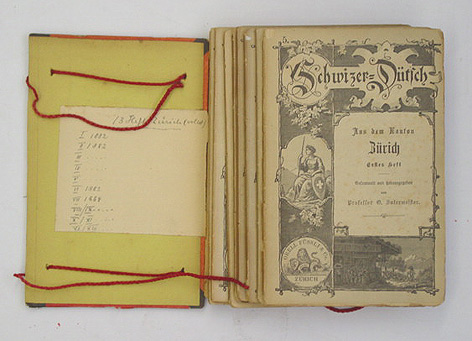 13 Hefte Zürich
I 1882
II 1882
III
IV
V
VI 1882
VII 1884
5.
Schwizer-Dütsch
Aus dem Kanton
Zürich
Erstes Heft
Gesammelt und herausgegeben
von
Professor O. Sutermeister.
ORELL FÜSSLI & Co.
ZÜRICH